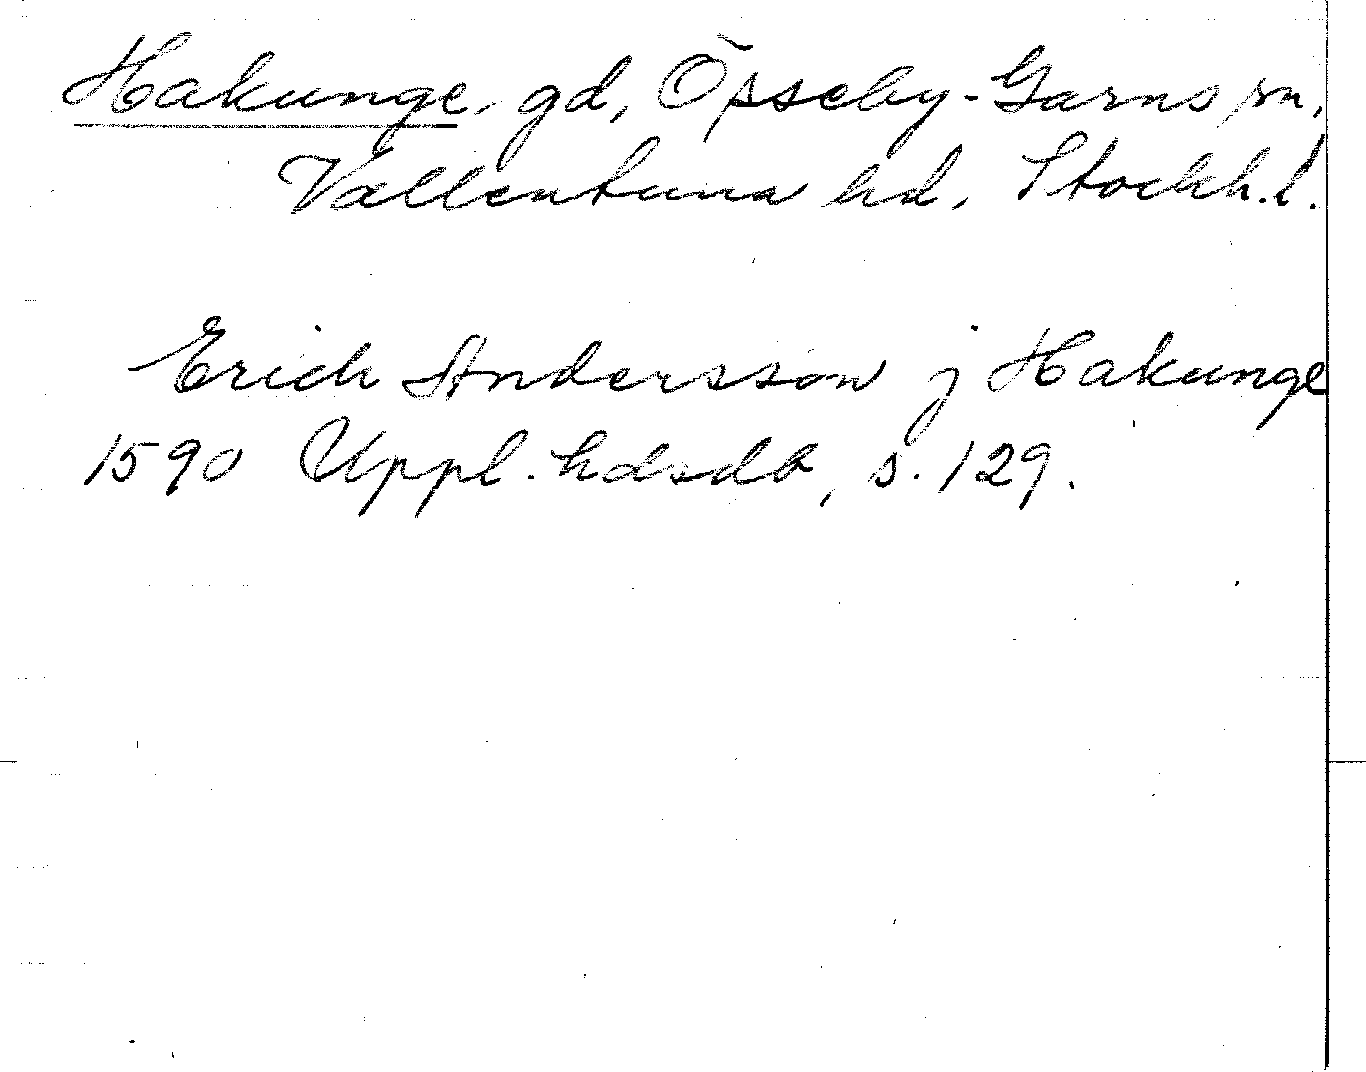 Hakunge, gd, Össeby-Garns sn,
Vallentuna hd, Stockh.l.
Erich Andersson j Hakunge
1590 Uppl. hdsdb, s. 129.